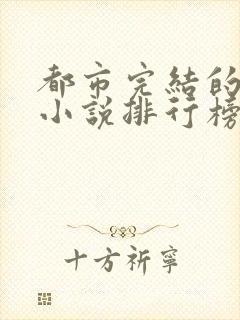 都市完結的
小說排行榜
十方祈寧